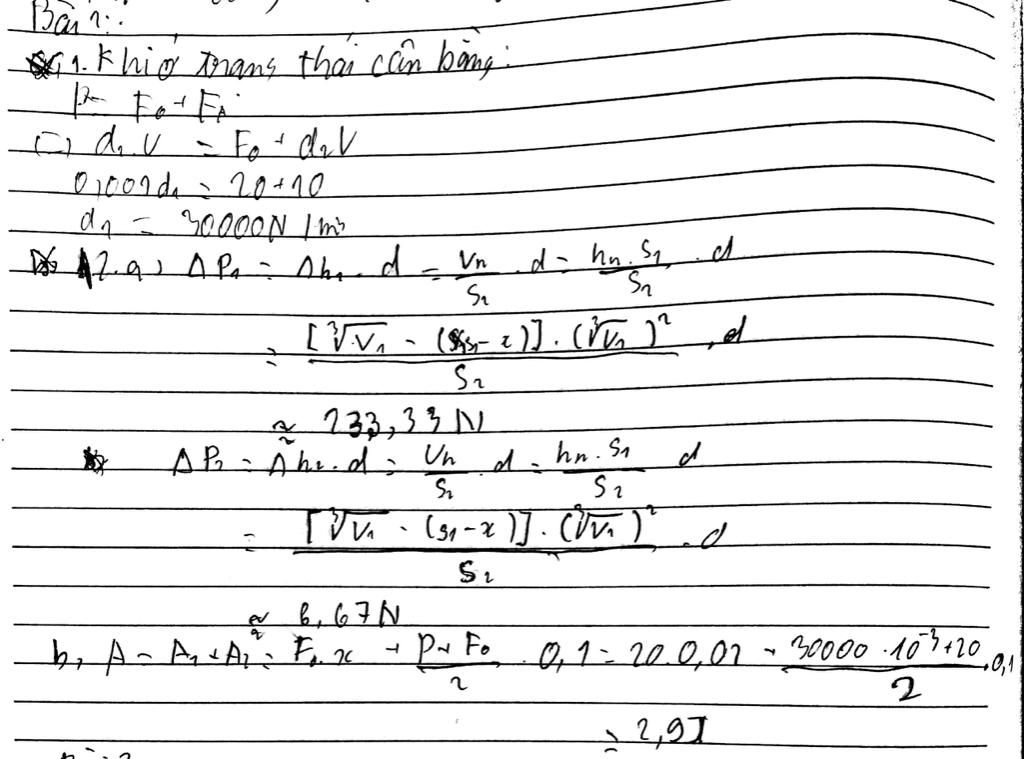 Bài 1:
1. Khi ở trạng thái cân bằng:
P = F₀ + F_A
(=) d₁.V = F₀ + d₂V
0,001d₁ = 20+10
d₁ = 30000N/m³
2.a, ΔP₁ = Δh₁.d = Vn/S₂ .d = hn.S₁/S₂ .d
= [∛V₁ - (s₁-x)].(∛V₁)²/S₂ .d
≈ 233,33N
ΔP₂ = Δh₂.d = Vn/S₂ .d = hn.S₁/S₂ d
= [∛V₁ - (s₁-x)].(∛V₁)²/S₂ .d
≈ 6,67N
b, A = A₁+A₂ = F₀.x + P+F₀/2 .0,1 = 20.0,02 + 30000.10⁻³+20/2 .0,1
= 2,9J